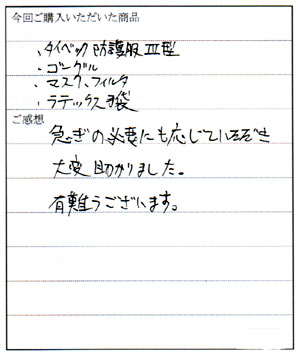 今回ご購入いただいた商品
、タイベック防護服Ⅲ型
、ゴーグル
、マスク、フィルタ
、ラテックス手袋
ご感想
急ぎの必要にも応じていただき
大変助かりました。
有難うございます。